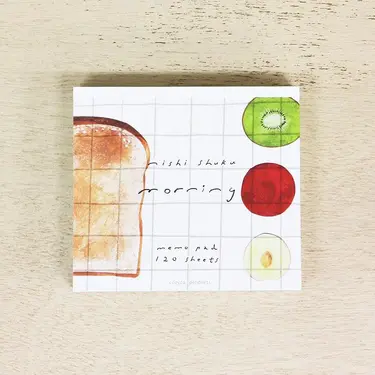 nishi shuku
morning
memo pad
120 sheets